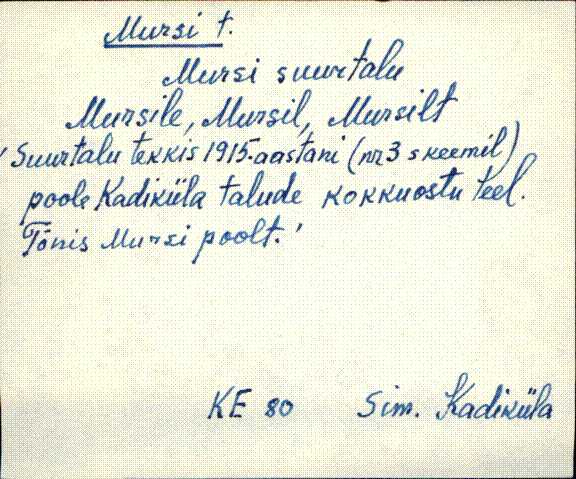 Mursi t.
Mursi suurtalu
Mursile, Mursil, Mursilt
'Suurtalu tekkis 1915. aastani (nr 3 skeemil)
poole Kadiküla talude kokkuostu teel.
Tõnis Mursi poolt.'
KE 80 Sim. Kadiküla